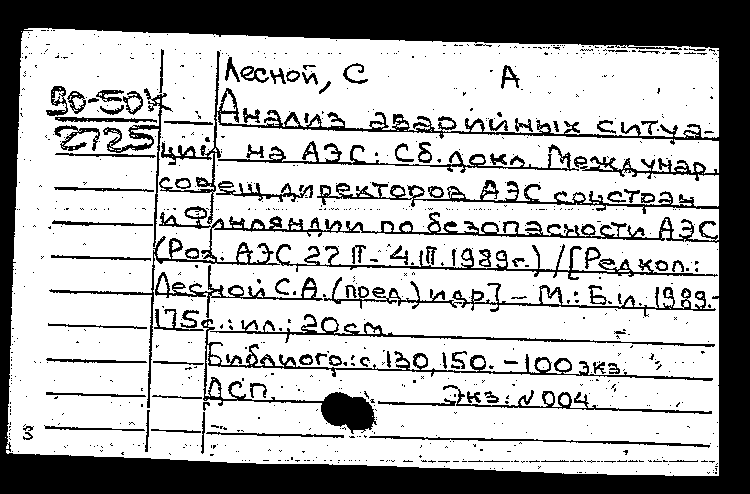 Лесной, С А
90-50К
2725
Анализ аварийных ситуа-
ций на АЭС: Сб. докл. Междунар.
совещ. директоров АЭС соцстран
и Финляндии по безопасности АЭС
(Ров. АЭС, 27 II - 4.III.1989г.) / [Редкол.:
Лесной С.А. (пред.) и др.] – М.: Б.и., 1989.-
175с.: ил.; 20см.
Библиогр.: с. 130, 150. – 100 экз.
ДСП. Экз: N 004.
3